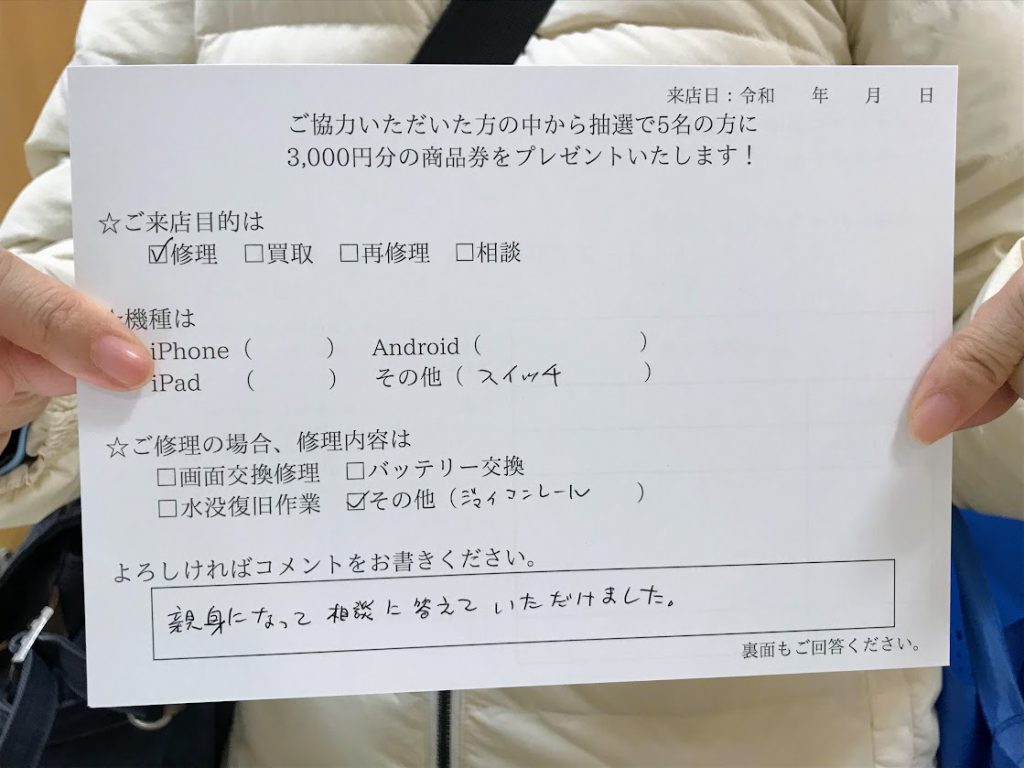 来店日：令和　　年　　月　　日
ご協力いただいた方の中から抽選で5名の方に
3,000円分の商品券をプレゼントいたします！
☆ご来店目的は
☑修理　□買取　□再修理　□相談
機種は
iPhone（　　　）　Android（　　　　　　　）
iPad　（　　　）　その他（ スイッチ　　　）
☆ご修理の場合、修理内容は
□画面交換修理　□バッテリー交換
□水没復旧作業　☑その他（ジョイコンレール　　）
よろしければコメントをお書きください。
親身になって 相談に 答えて いただけました。
裏面もご回答ください。